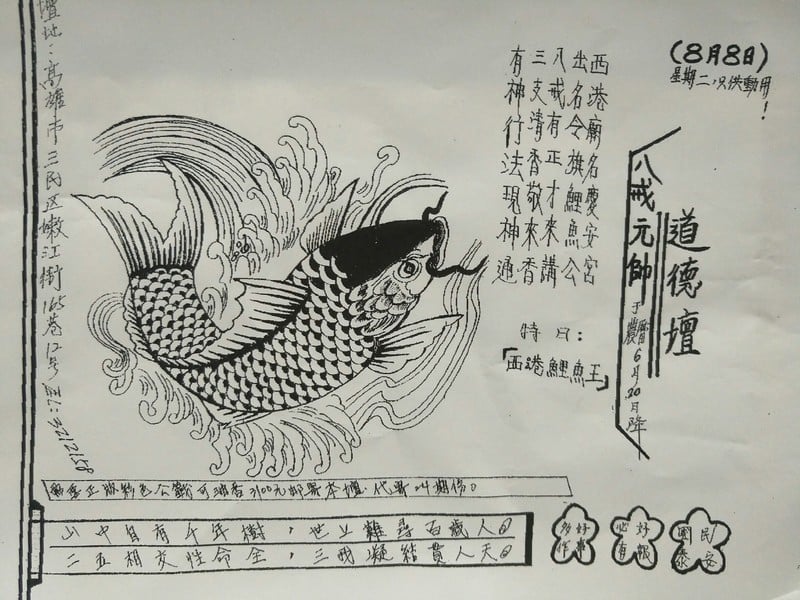 (8月8日)
星期二,只供動用!
道德壇
八戒元帥 于農曆6月20日降
西港廟名慶安宮
出名令旗鯉魚公
八戒有正才來講
三支清香敬來香
有神行法現神通
特日:
「西港鯉魚王」
壇址:高雄市三民区嫩江街165巷12号
山中自有千年樹,世上難尋百歲人
二五相交性命全,三戒凝結貫人天
好事多作
好心有報
國泰民安